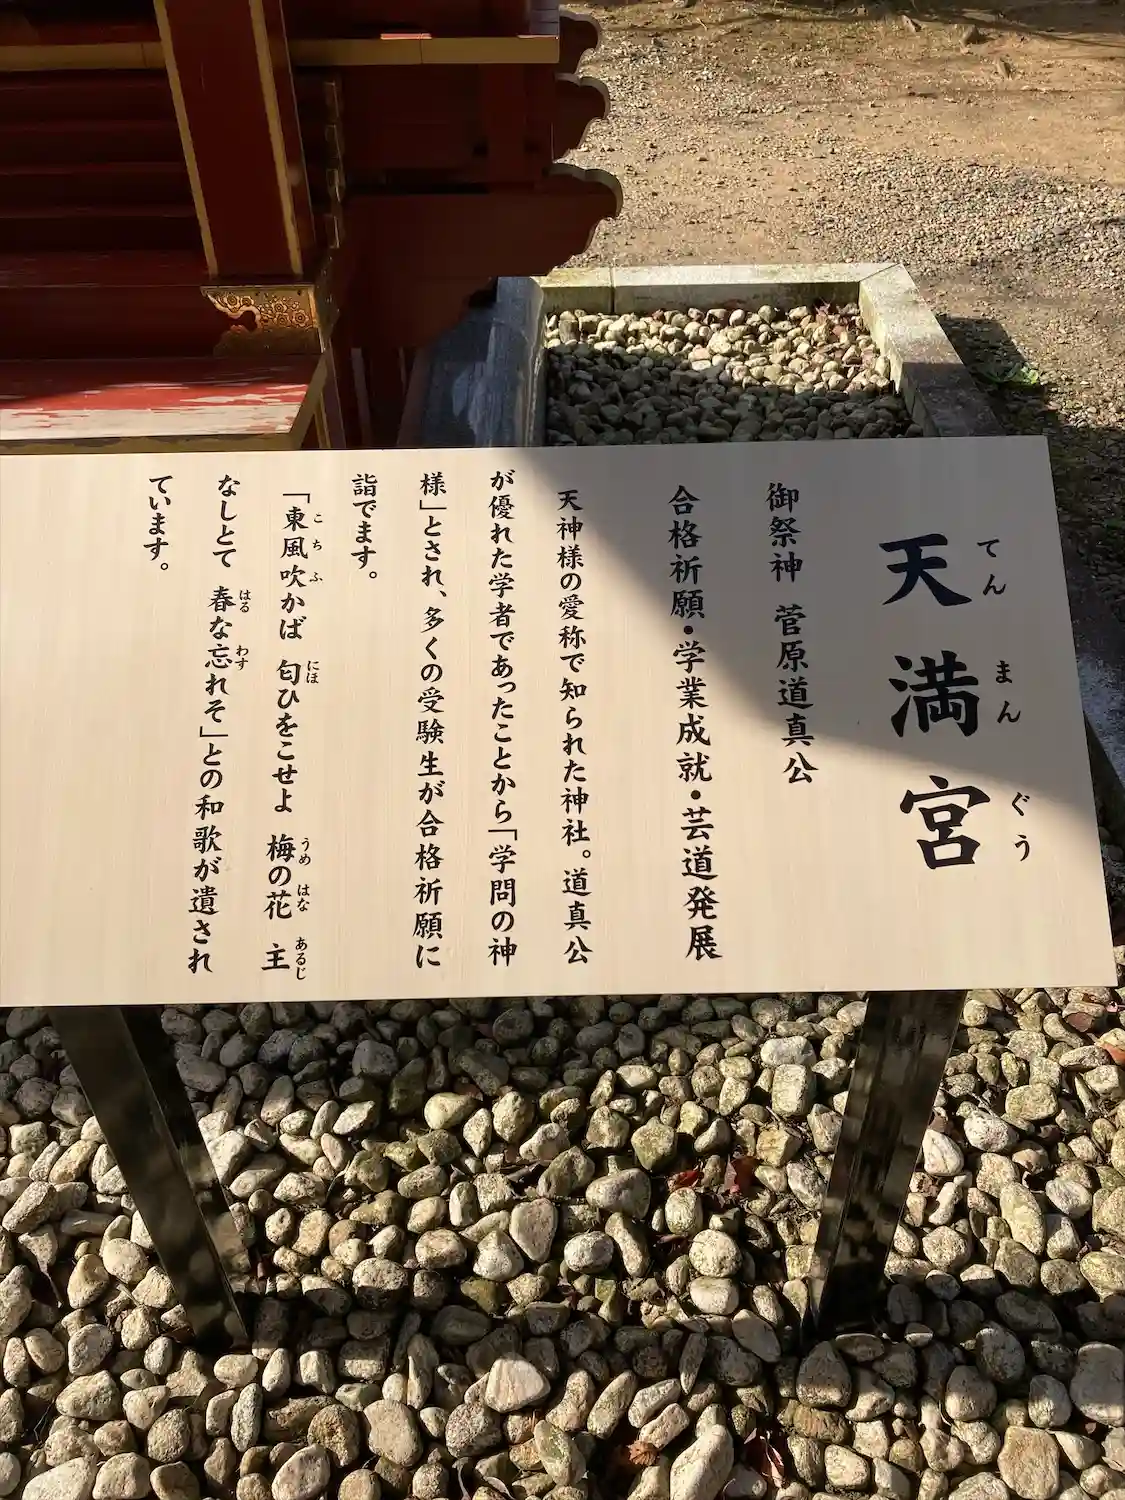 天満宮
てんまんぐう
御祭神 菅原道真公
合格祈願・学業成就・芸道発展
天神様の愛称で知られた神社。道真公
が優れた学者であったことから「学問の神
様」とされ、多くの受験生が合格祈願に
詣でます。
「東風吹かば 匂ひをこせよ 梅の花 主
こちふ にほ うめ はな あるじ
なしとて 春な忘れそ」との和歌が遺され
はる わす
ています。